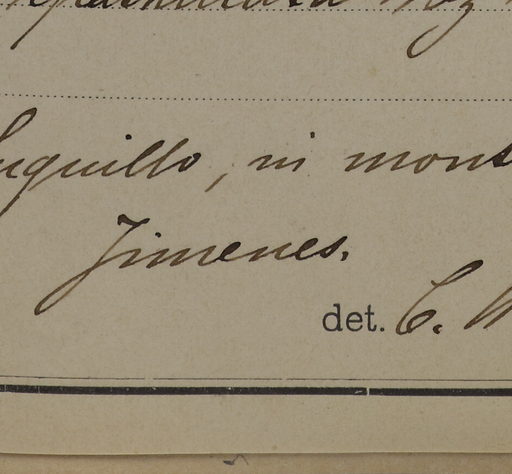 uquillo, in mont
Jimenes.
det. C.